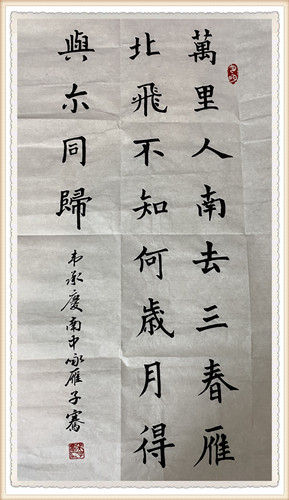 萬里人南去三春雁
北飛不知何歳月得
與尒同歸
韦承慶南中咏雁子騫